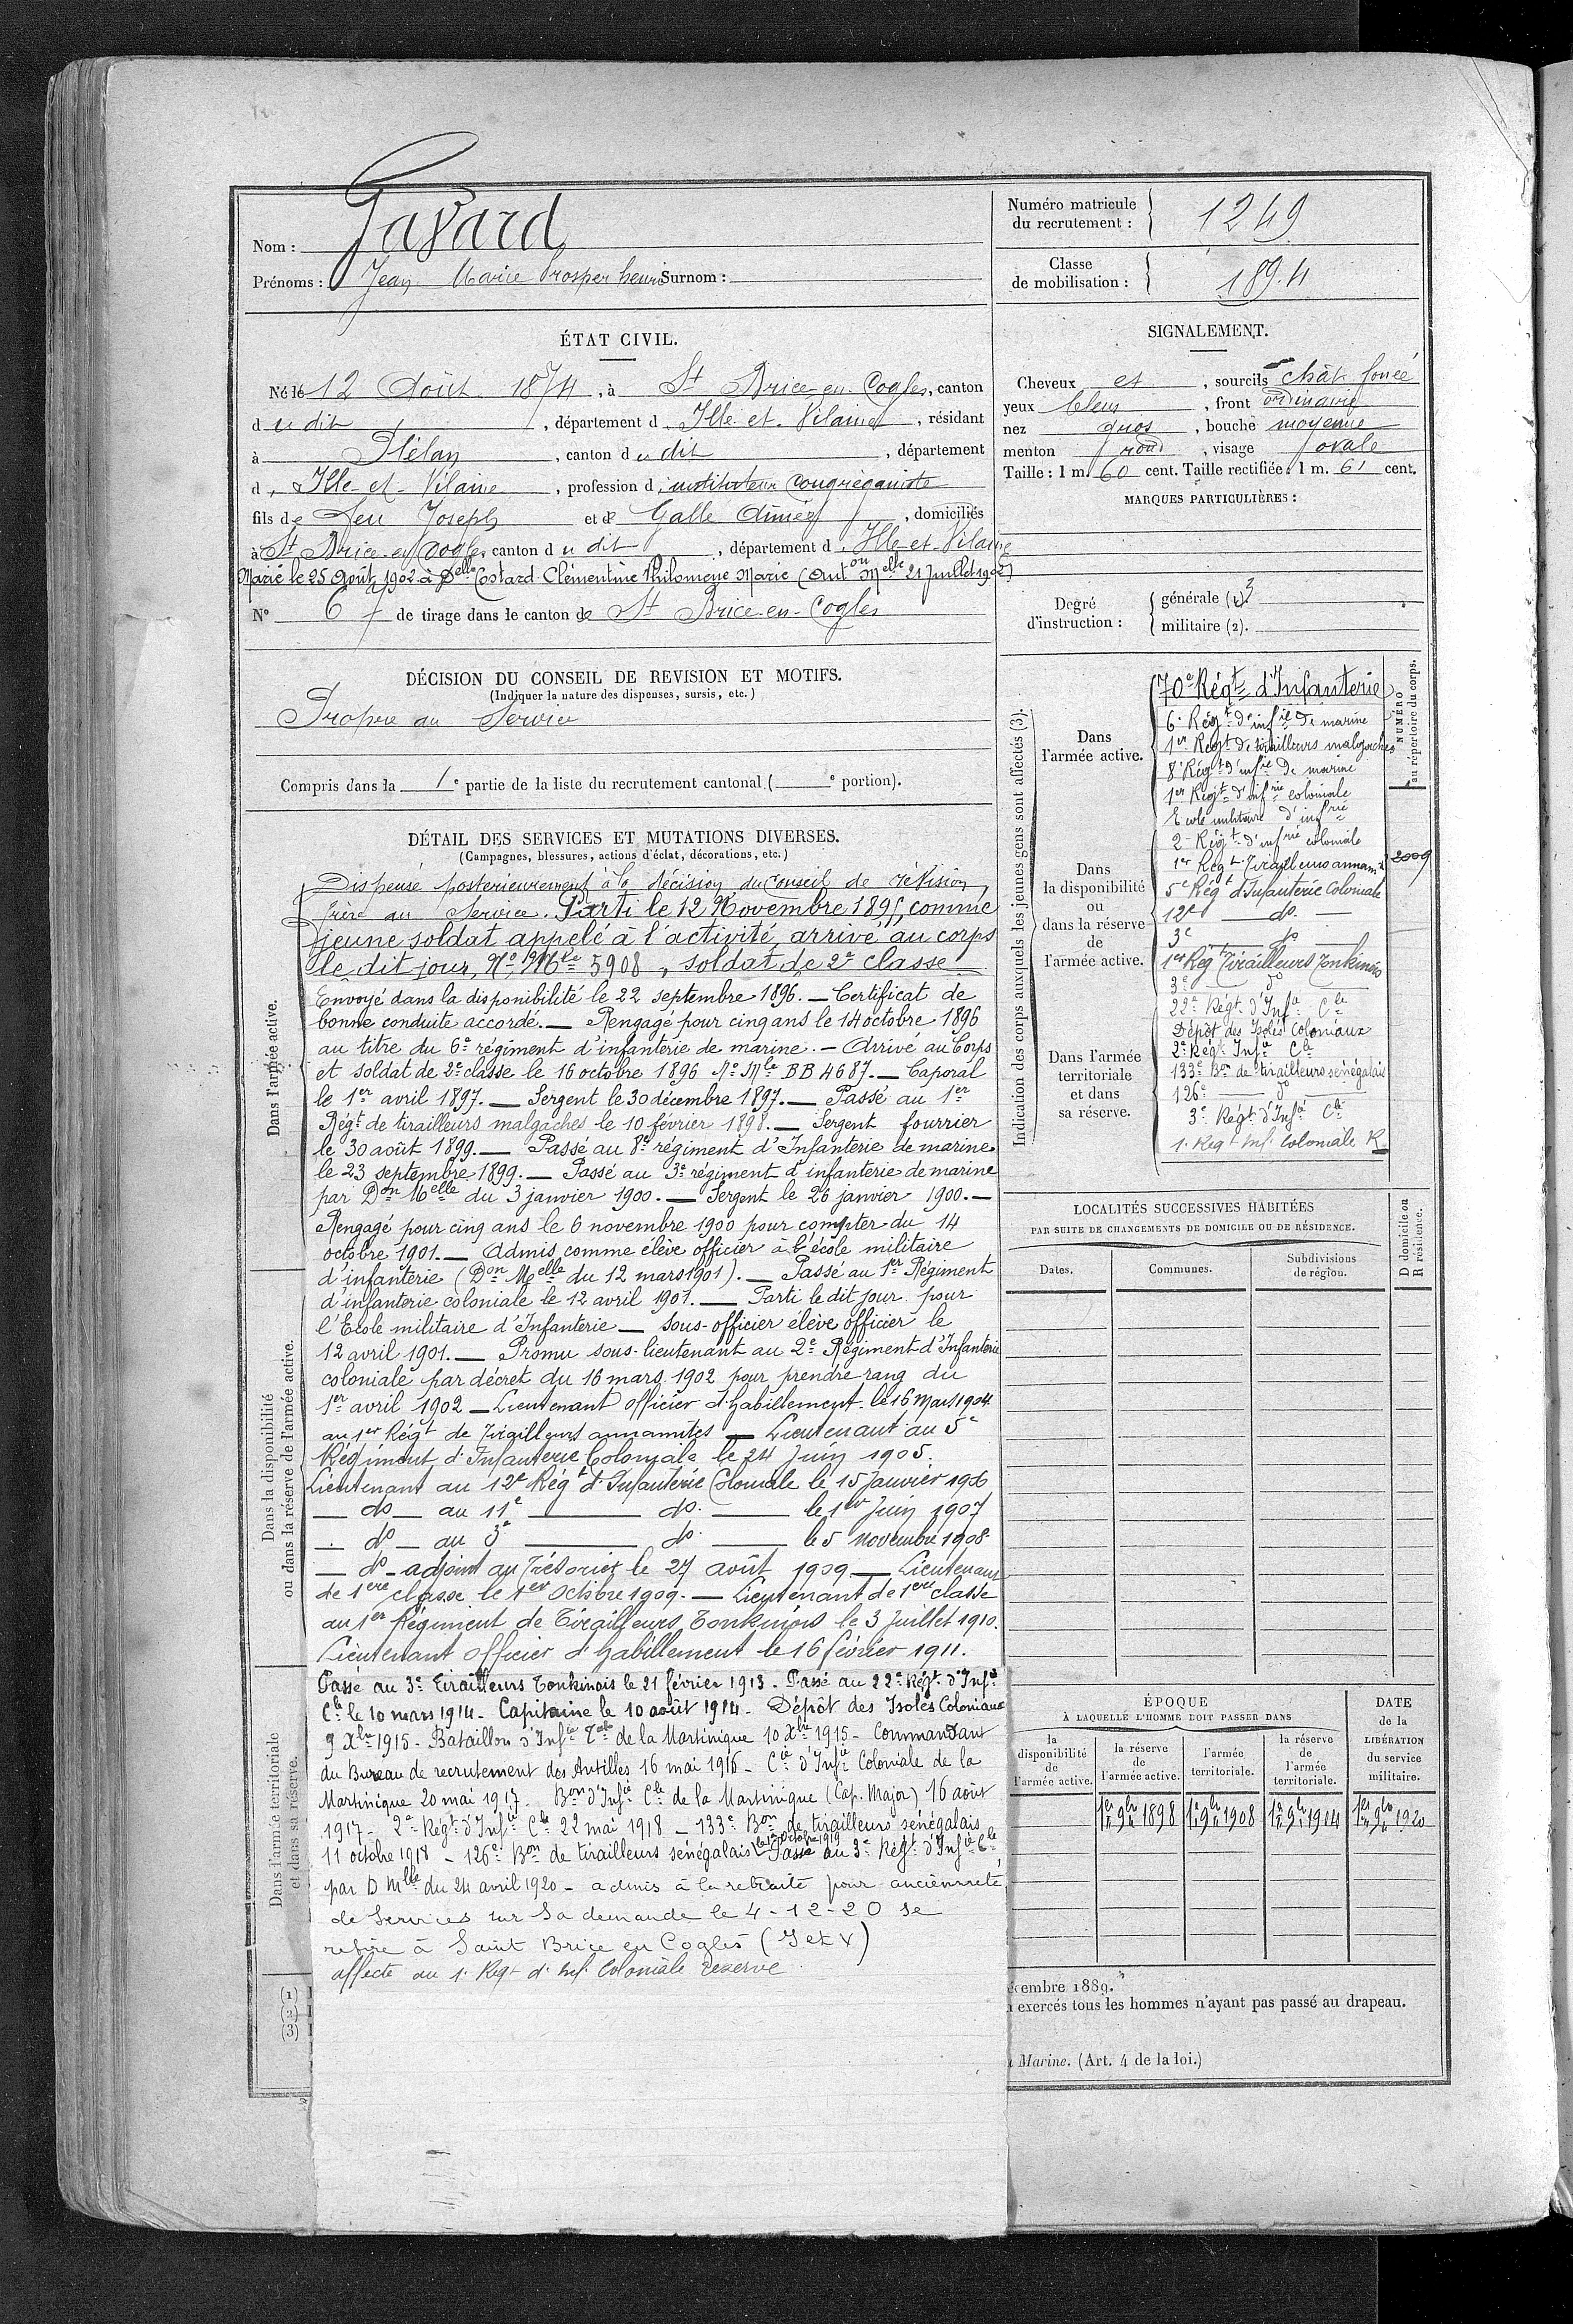 Nom : Gavard
Prénoms : Jean Marie Prosper henri Surnom :
Numéro matricule du recrutement : 1249
Classe de mobilisation : 1894
ÉTAT CIVIL.
Né le 12 Août 1874, à St Brice-en-Cogles, canton
du dit, département d'Ille-et-Vilaine, résidant
à Plélan, canton du dit, département
d'Ille-et-Vilaine, profession d'instituteur congréganiste
fils de feu Joseph et de Galle Aimée, domiciliés
à St Brice-en-Cogles, canton du dit, département d'Ille-et-Vilaine
Marié le 25 Août 1902 à Delle Costard Clémentine Philomene Marie (Auton Melle 21 Juillet 1902)
N° 67 de tirage dans le canton de St Brice-en-Cogles
SIGNALEMENT.
Cheveux et, sourcils chât. foncé
yeux bleus, front ordinaire
nez gros, bouche moyenne
menton rond, visage ovale
Taille : 1 m. 60 cent. Taille rectifiée : 1 m. 61 cent.
MARQUES PARTICULIÈRES :
Degré d'instruction : générale (1). 3
militaire (2).
DÉCISION DU CONSEIL DE REVISION ET MOTIFS.
(Indiquer la nature des dispenses, sursis, etc.)
Propre au Service
Compris dans la 1e partie de la liste du recrutement cantonal (e portion).
DÉTAIL DES SERVICES ET MUTATIONS DIVERSES.
(Campagnes, blessures, actions d'éclat, décorations, etc.)
Dans l'armée active.
Dispensé posterieurement à la décision du Conseil de révision,
frère au Service. Parti le 12 Novembre 1895, comme
jeune soldat appelé à l'activité, arrivé au corps
le dit jour, No Mle 5908, soldat de 2e classe
Envoyé dans la disponibilité le 22 septembre 1896. — Certificat de
bonne conduite accordé. — Rengagé pour cinq ans le 14 octobre 1896
au titre du 6e régiment d'infanterie de marine. — Arrivé au Corps
et soldat de 2e classe le 16 octobre 1896 No Mle BB 4687. — Caporal
le 1er avril 1897. — Sergent le 30 décembre 1897. — Passé au 1er
Régt de tirailleurs malgaches le 10 février 1898. — Sergent fourrier
le 30 août 1899. — Passé au 8e régiment d'Infanterie de marine
le 23 septembre 1899. — Passé au 3e régiment d'infanterie de marine
par Don Melle du 3 janvier 1900. — Sergent le 26 janvier 1900. —
Rengagé pour cinq ans le 6 novembre 1900 pour compter du 14
octobre 1901. — Admis comme élève officier à l'école militaire
d'infanterie (Don Melle du 12 mars 1901). — Passé au 1er Régiment
d'infanterie coloniale le 12 avril 1901. — Parti le dit jour pour
l'Ecole militaire d'Infanterie — Sous-officier élève officier le
12 avril 1901. — Promu sous-lieutenant au 2e Régiment d'Infanterie
coloniale par décret du 16 mars 1902 pour prendre rang du
1er avril 1902 — Lieutenant officier d'habillement le 16 Mars 1904
au 1er Régt de Tirailleurs annamites — Lieutenant au 5e
Régiment d'Infanterie Coloniale le 24 Juin 1905.
Lieutenant au 12e Régt d'Infanterie Coloniale le 15 Janvier 1906
— do — au 11e — do. — le 1er Juin 1907
— do — au 3e — do. — le 5 novembre 1908
— do — adjoint au Trésorier le 27 août 1909 — Lieutenant
de 1ere classe le 1er Octobre 1909. — Lieutenant de 1ere classe
au 1er Régiment de Tirailleurs Tonkinois le 3 Juillet 1910.
Lieutenant officier d'habillement le 16 février 1911.
Passé au 3e Tirailleurs Tonkinois le 21 février 1913. Passé au 22e Régt d'Infie
Cle le 10 mars 1914 - Capitaine le 10 août 1914 - Dépôt des Isolés Coloniaux
9 Xbre 1915 - Bataillon d'Infie Cale de la Martinique 10 Xbre 1915 - Commandant
du Bureau de recrutement des Antilles 16 mai 1916 - Cie d'Infie Coloniale de la
Martinique 20 mai 1917 - Bon d'Infie Cle de la Martinique (Cap. Major) 16 août
1917 - 2e Régt d'Infie Cle 22 mai 1918 - 133e Bon de tirailleurs sénégalais
11 octobre 1918 - 126e Bon de tirailleurs sénégalais le 12 octobre 1919 Passé au 3e Régt d'Infie Cle
par D Mlle du 24 avril 1920 - admis à la retraite pour ancienneté
de services sur sa demande le 4-12-20 se
retire à Saint Brice en Coglès (I et V)
affecté au 1. Régt d'Inf. Coloniale réserve
Dans la disponibilité ou dans la réserve de l'armée active.
Dans l'armée territoriale et dans sa réserve.
(1)
(2)
(3)
Indication des corps auxquels les jeunes gens sont affectés (3).
Dans l'armée active.
Dans la disponibilité ou dans la réserve de l'armée active.
Dans l'armée territoriale et dans sa réserve.
NUMÉRO au répertoire du corps.
70e Régt d'Infanterie
6e Régt d'infie de marine
1er Régt de tirailleurs malgaches
8e Régt d'infie de marine
1er Régt d'infrie coloniale
Ecole militaire d'infrie
2e Régt d'infrie coloniale
1er Régt Tirailleurs annamtes 2009
5e Régt d'Infanterie Coloniale
12e — do. —
3e — do —
1er Rég Tirailleurs Tonkinois
3e — do —
22e Régt d'Infie Cle
Dépôt des Isolés Coloniaux
2e Régt Infie Cle
133e Bon de tirailleurs sénégalais
126e — do —
3e Régt d'Infie Cle
1. Régt Inf. Coloniale R
LOCALITÉS SUCCESSIVES HABITÉES
PAR SUITE DE CHANGEMENTS DE DOMICILE OU DE RÉSIDENCE.
Dates. Communes. Subdivisions de région. D domicile ou R résidence.
ÉPOQUE
À LAQUELLE L'HOMME DOIT PASSER DANS
la disponibilité de l'armée active. la réserve de l'armée active. l'armée territoriale. la réserve de l'armée territoriale.
DATE de la LIBÉRATION du service militaire.
1er 9bre 1898 1er 9bre 1908 1er 9bre 1914 1er 9bre 1920
écembre 1889.
exercés tous les hommes n'ayant pas passé au drapeau.
Marine. (Art. 4 de la loi.)